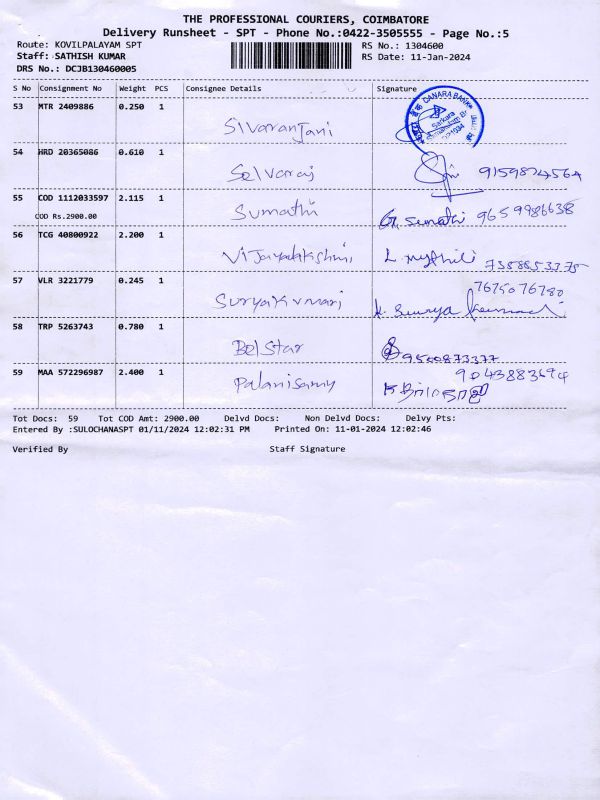 THE PROFESSIONAL COURIERS, COIMBATORE
Delivery Runsheet - SPT - Phone No.:0422-3505555 - Page No.:5
Route: KOVILPALAYAM SPT RS No.: 1304600
Staff: SATHISH KUMAR RS Date: 11-Jan-2024
DRS No.: DCJB130460005
S No Consignment No Weight PCS Consignee Details Signature
CANARA BANK
53 MTR 2409886 0.250 1 Sivaranjani
54 HRD 20365086 0.610 1 Selvaraj
55 COD 1112033597 2.115 1 Sumathi G. Sumathi 9659986638
COD Rs.2900.00
56 TCG 40800922 2.200 1 Vijayalakshmi L mythili 7358853375
57 VLR 3221779 0.245 1 Suryakumari 7675076780
K. Surya Kumari
58 TRP 5263743 0.780 1 BelStar 9500873377
59 MAA 572296987 2.400 1 Palanisamy 9043883694
Tot Docs: 59 Tot COD Amt: 2900.00 Delvd Docs: Non Delvd Docs: Delvy Pts:
Entered By :SULOCHANASPT 01/11/2024 12:02:31 PM Printed On: 11-01-2024 12:02:46
Verified By Staff Signature